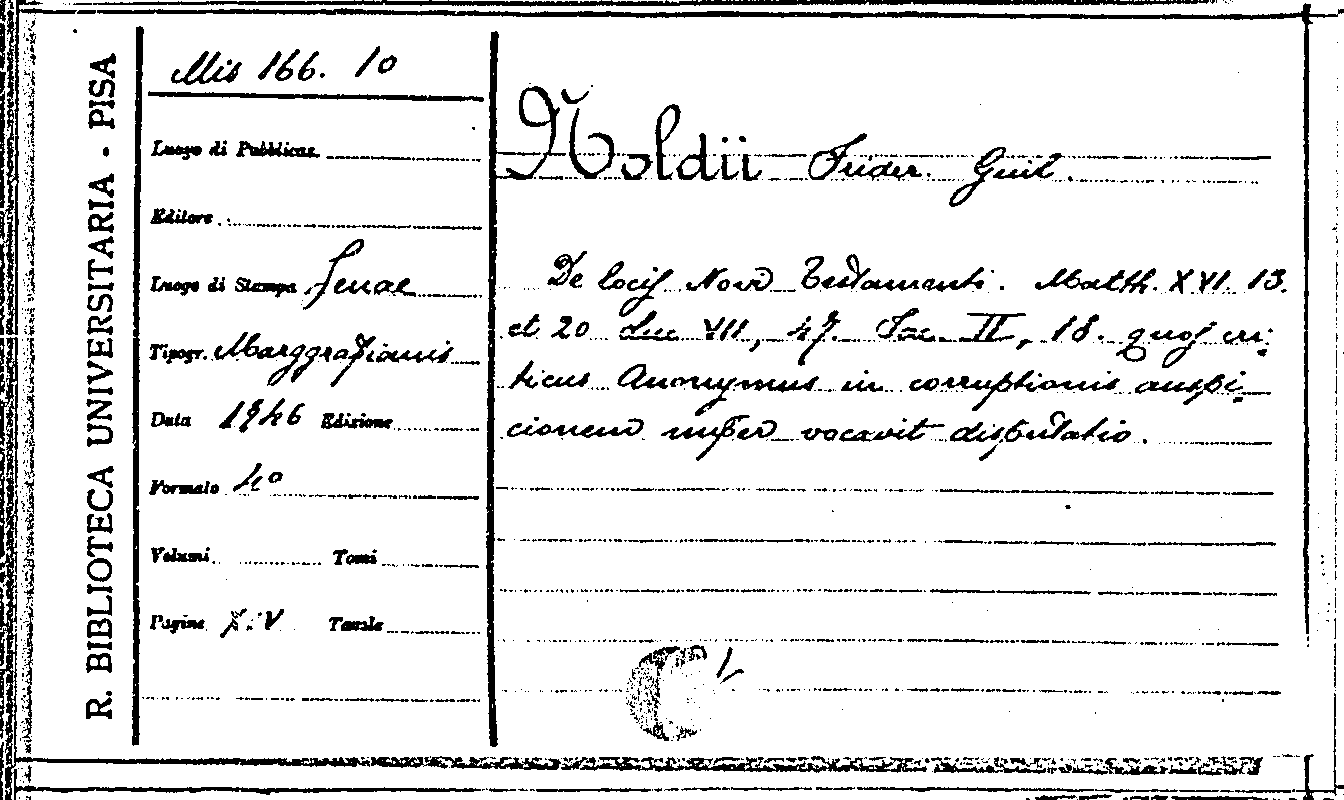 R. BIBLIOTECA UNIVERSITARIA - PISA
Mis 166. 10
Luogo di Pubblicaz.
Editore
Luogo di Stampa Jenae
Tipogr. Marggrafianis
Data 1746 Edizione
Formato 4º
Volumi Tomi
Pagine XIV Tavole
Noldii Frider. Guil.
De locis Novi Testamenti. Matth. XVI. 13.
et 20 Luc VII, 47. Jac. II, 18. quos cri-
ticus Anonymus in corruptionis auspi-
cionem nuper vocavit disputatio.